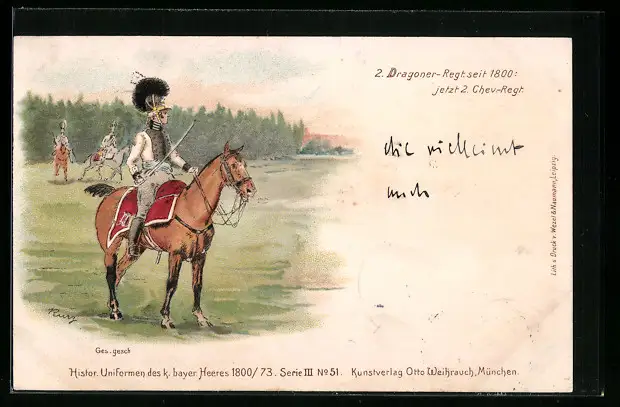 2. Dragoner-Regt. seit 1800:
jetzt 2. Chev.-Regt.
die vielleicht
auch
Lith. u. Druck v. Wezel & Naumann, Leipzig.
Kunz
Ges. gesch
Histor. Uniformen des k. bayer. Heeres 1800/73. Serie III No 51. Kunstverlag Otto Weihrauch, München.